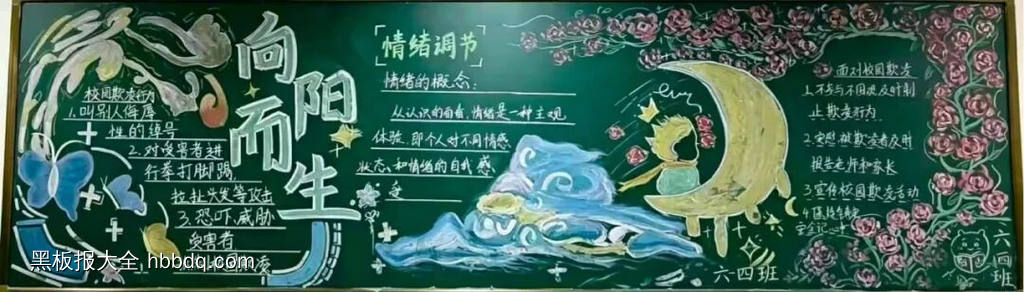 向阳而生
校园欺凌行为
1.叫别人侮辱
性的绰号
2.对受害者进
行拳打脚踢,
拉扯头发等攻击
3.恐吓,威胁
受害者
情绪调节
情绪的概念:
从认识的角看,情绪是一种主观
体验,即个人对不同情感
状态和情绪的自我感
受
面对校园欺凌
1.不参与不围观及时制
止欺凌行为
2.安慰被欺凌者及时
报告老师和家长
3.宣传校园欺凌活动
六·四班
六·四班
黑板报大全 hbbdq.com